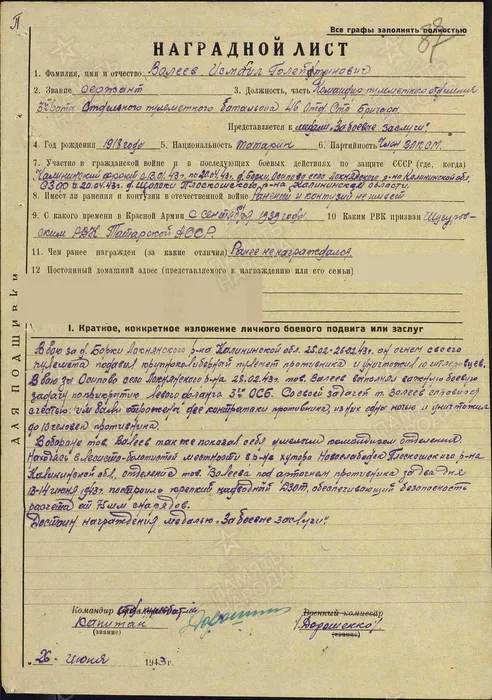 П
Все графы заполнять полностью
88
87
НАГРАДНОЙ ЛИСТ
1. Фамилия, имя и отчество Валеев Исмаил
2. Звание сержант 3. Должность, часть Командир пулеметного отделения
роты Отдельного пулеметного батальона 46 Отд. Стр. бригады
Представляется к медали "За боевые заслуги".
4. Год рождения 1918 года 5. Национальность татарин 6. Партийность Член ВЛКСМ
7. Участие в гражданской войне и в последующих боевых действиях по защите СССР (где, когда)
Калининский фронт с 13.01.43г. по 20.04.43г. д. Борки, Осипово село Локнянского р-на Калининской обл.
СЗФ с 20.04.43г. Плоскошского р-на Калининской области.
8. Имеет ли ранения и контузии в отечественной войне Ранений и контузий не имеет
9. С какого времени в Красной Армии с сентября 1939 года 10 Каким РВК призван
ским РВК Татарской АССР.
11. Чем ранее награжден (за какие отличия) Ранее не награждался
12 Постоянный домашний адрес (представляемого к награждению или его семьи)
ДЛЯ ПОДШИВКИ
I. Краткое, конкретное изложение личного боевого подвига или заслуг
В бою за д. Борки Локнянского р-на Калининской обл. 25.02-26.02.43г. он огнем своего
пулемета подавил крупнокалиберный пулемет противника и уничтожил 10 гитлеровцев.
В бою за Осипово село Локнянского р-на 28.02.43г. тов. Валеев выполнял важную боевую
задачу по прикрытию левого фланга 3го ОСБ. Со своей задачей т. Валеев справился
с честью: им были отражены две контратаки противника, из них одна ночью и уничтожил
до 10 человек противника.
В обороне тов. Валеев также показал себя умелым командиром отделения.
Находясь в лесисто-болотистой местности в р-не хутора Новослободка Плоскошского р-на
Калининской обл., отделение тов. Валеева под артогнем противника за два дня
13-14 июня 1943г. построило крепкий надводный ДЗОТ, обеспечивающий безопасность
расчета от 75 мм снарядов.
Достоин награждения медалью "За боевые заслуги".
Командир
Капитан
(звание)
Военный комиссар
/Дорошенко/
(звание)
26 Июня 1943г.
ПАМЯТЬ НАРОДА